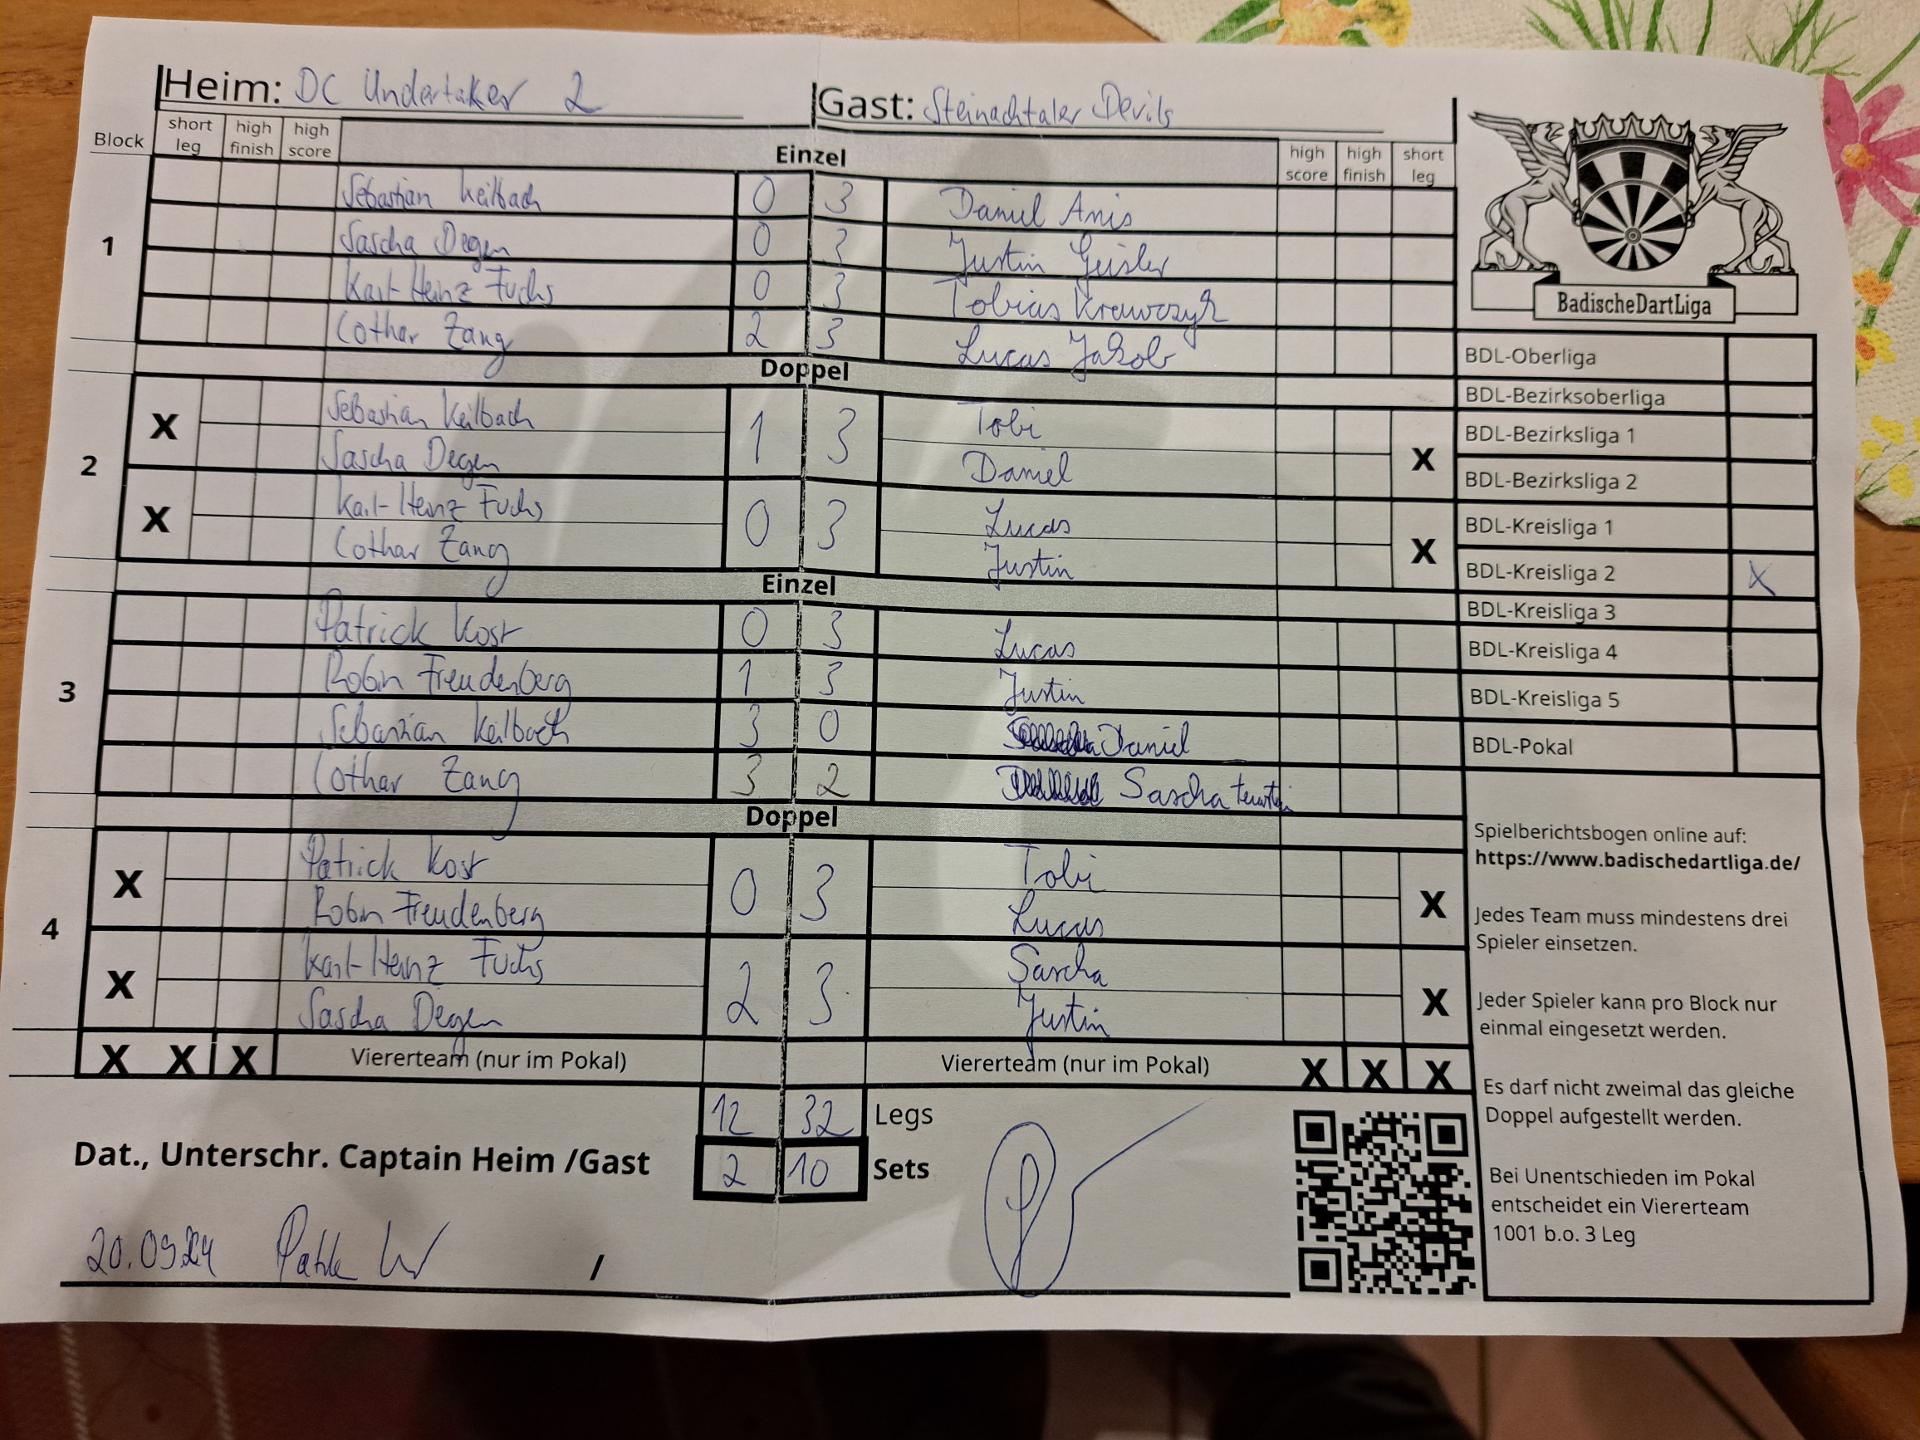 Heim: DC Undertaker 2 Gast: Steinachtaler Devils
Block short leg high finish high score Einzel high score high finish short leg
1
Sebastian Keilbach 0 3 Daniel Anis
Sascha Degen 0 3 Justin Geisler
Karl-Heinz Fuchs 0 3 Tobias Krawczyk
Lothar Zang 2 3 Lucas Jakob
Doppel
2
X Sebastian Keilbach 1 3 Tobi X
Sascha Degen Daniel
X Karl-Heinz Fuchs 0 3 Lucas X
Lothar Zang Justin
Einzel
3
Patrick Kost 0 3 Lucas
Robin Freudenberg 1 3 Justin
Sebastian Keilbach 3 0 Daniel
Lothar Zang 3 2 Sascha
Doppel
4
X Patrick Kost 0 3 Tobi X
Robin Freudenberg Lucas
X Karl-Heinz Fuchs 2 3 Sascha X
Sascha Degen Justin
X X X Viererteam (nur im Pokal) Viererteam (nur im Pokal) X X X
12 32 Legs
Dat., Unterschr. Captain Heim /Gast 2 10 Sets
20.09.24 /
BadischeDartLiga
BDL-Oberliga
BDL-Bezirksoberliga
BDL-Bezirksliga 1
BDL-Bezirksliga 2
BDL-Kreisliga 1
BDL-Kreisliga 2 X
BDL-Kreisliga 3
BDL-Kreisliga 4
BDL-Kreisliga 5
BDL-Pokal
Spielberichtsbogen online auf:
https://www.badischedartliga.de/
Jedes Team muss mindestens drei
Spieler einsetzen.
Jeder Spieler kann pro Block nur
einmal eingesetzt werden.
Es darf nicht zweimal das gleiche
Doppel aufgestellt werden.
Bei Unentschieden im Pokal
entscheidet ein Viererteam
1001 b.o. 3 Leg